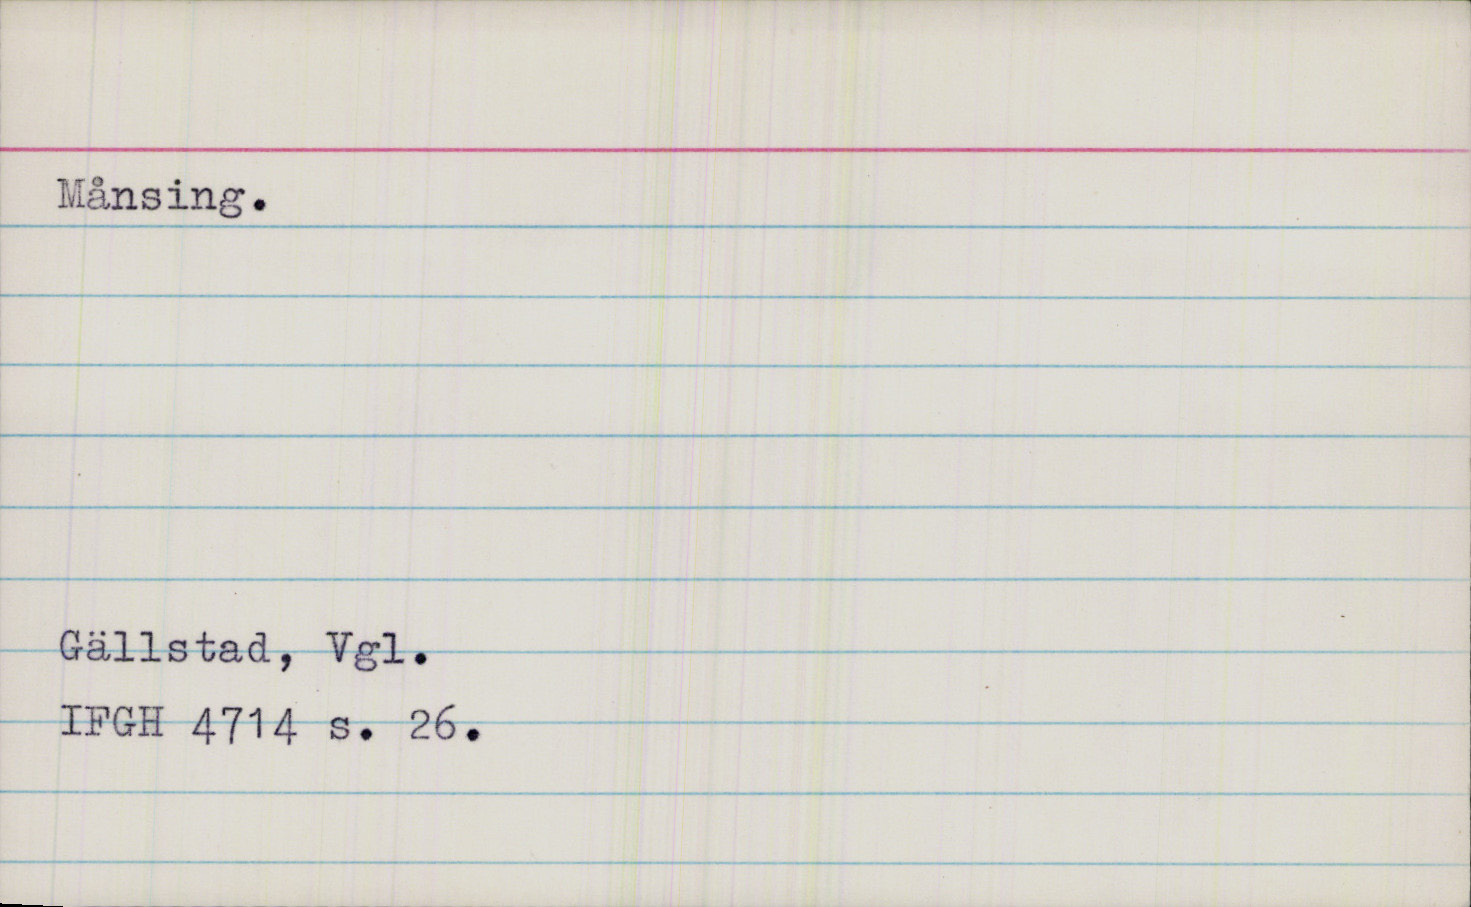 Månsing.
Gällstad, Vgl.
IFGH 4714 s. 26.